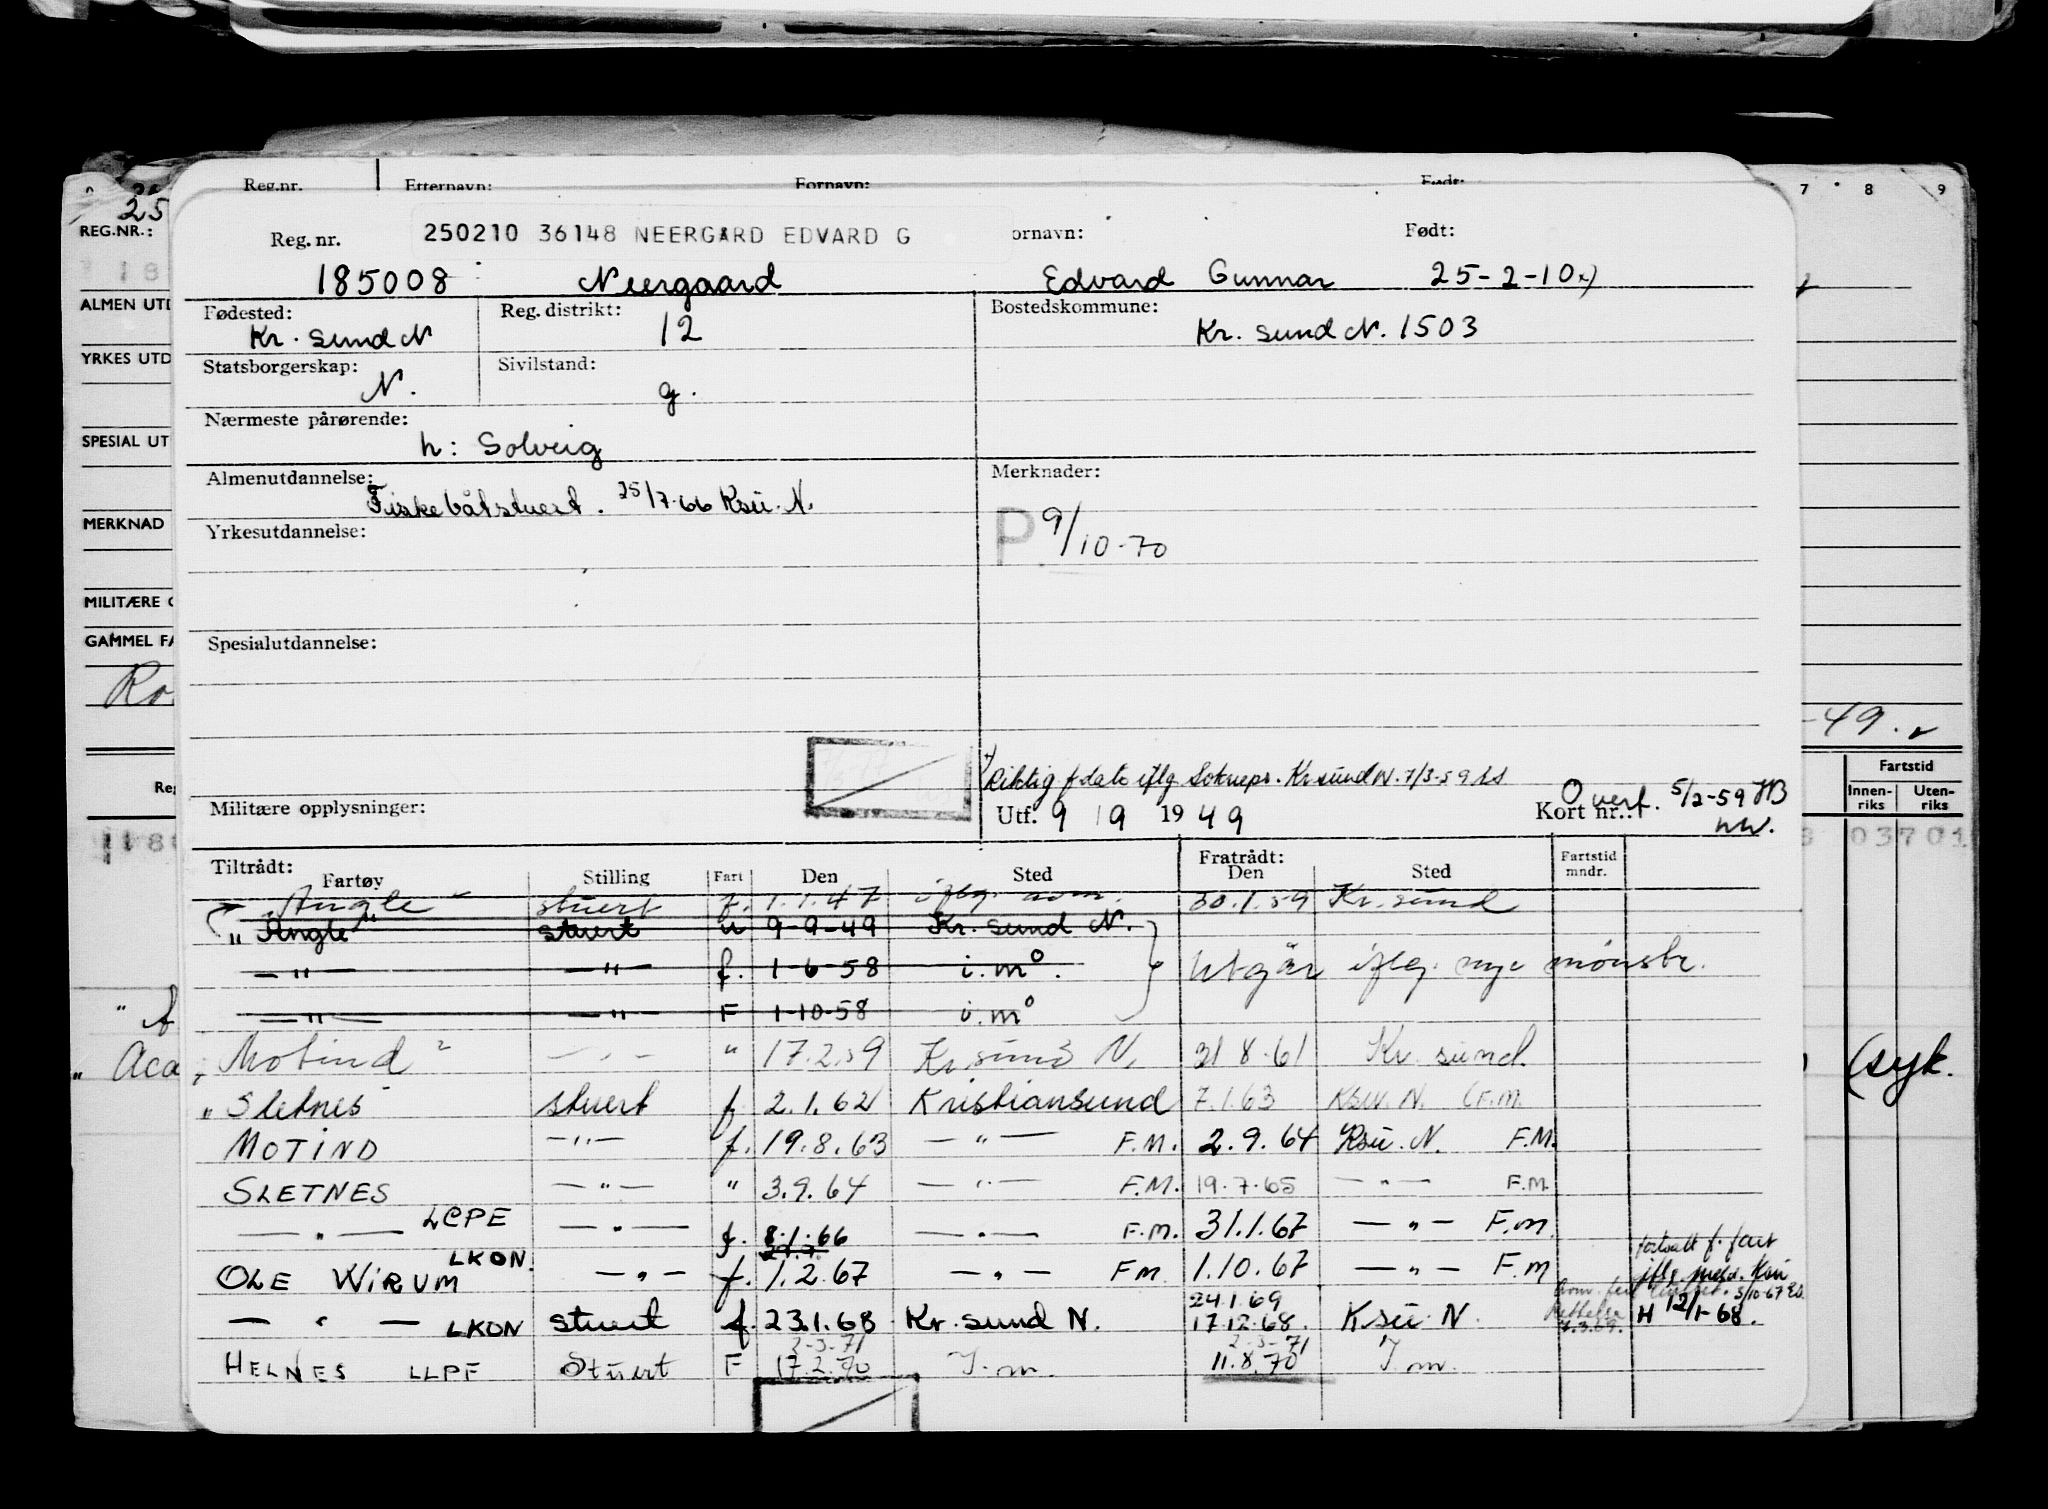 Reg.nr. Etternavn: Fornavn: Født:
7 8 9
25
REG.NR.:
250210 36148 NEERGARD EDVARD G
Reg. nr. ornavn: Født:
185008 Neergaard Edvard Gunnar 25-2-10 x)
ALMEN UTD
Fødested: Reg. distrikt: Bostedskommune:
Kr. sund N 12 Kr. sund N. 1503
YRKES UTD
Statsborgerskap: Sivilstand:
N. g.
Nærmeste pårørende:
h: Solveig
SPESIAL UT
Almenutdannelse: Merknader:
Fiskebåtstuert. 25/7-66 Ksu. N.
P 9/10-70
MERKNAD
Yrkesutdannelse:
MILITÆRE O
GAMMEL FA
Spesialutdannelse:
-49.
x) Riktig f dato iflg Sokнepr. Kr sund N. 7/3-59
Fartstid
Innenriks Utenriks
Militære opplysninger: Utf. 9 / 9 1949 Kort nr.: Overf. 5/2-59 HB
03701
Tiltrådt: Fratrådt:
Fartøy Stilling Fart Den Sted Den Sted Fartstid mndr.
"Angle" stuert f. 1.1.47 iflg. 30.1.59 Kr. sund
"Angle" stuert u 9-9-49 Kr. sund N.
— " — — " — f. 1-6-58 i. mº. Utgår iflg. nye mønstr.
— " — — " — F 1-10-58 i. mº
"Motind" — " — " 17.2.59 Kr. sund N. 31.8.61 Kr. sund
"Sletnes" stuert f 2.1.62 Kristiansund 7.1.63 Ksu. N. (F.M.
(syk.
MOTIND — " — f. 19.8.63 — " — F.M. 2.9.64 Ksu. N. F.M.
SLETNES — " — " 3.9.64 — " — F.M. 19.7.65 — " — F.M.
— " — LCPE — " — f. 8.1.66 — " — F.M. 31.1.67 — " — F.m
OLE WIRUM LKON. — " — f. 1.2.67 — " — F m 1.10.67 — " — F.m fortsatt f. fart iflg. meld. Ksu 5/10-67
— " — LKON stuert f. 23.1.68 Kr. sund N. 24.1.69 17.12.68. Ksu N. Rettelse H 12/1-68.
HELNES LLPF Stuert F 2-3-71 17.2.70 I. m. 2-3-71 11.8.70 I. m.